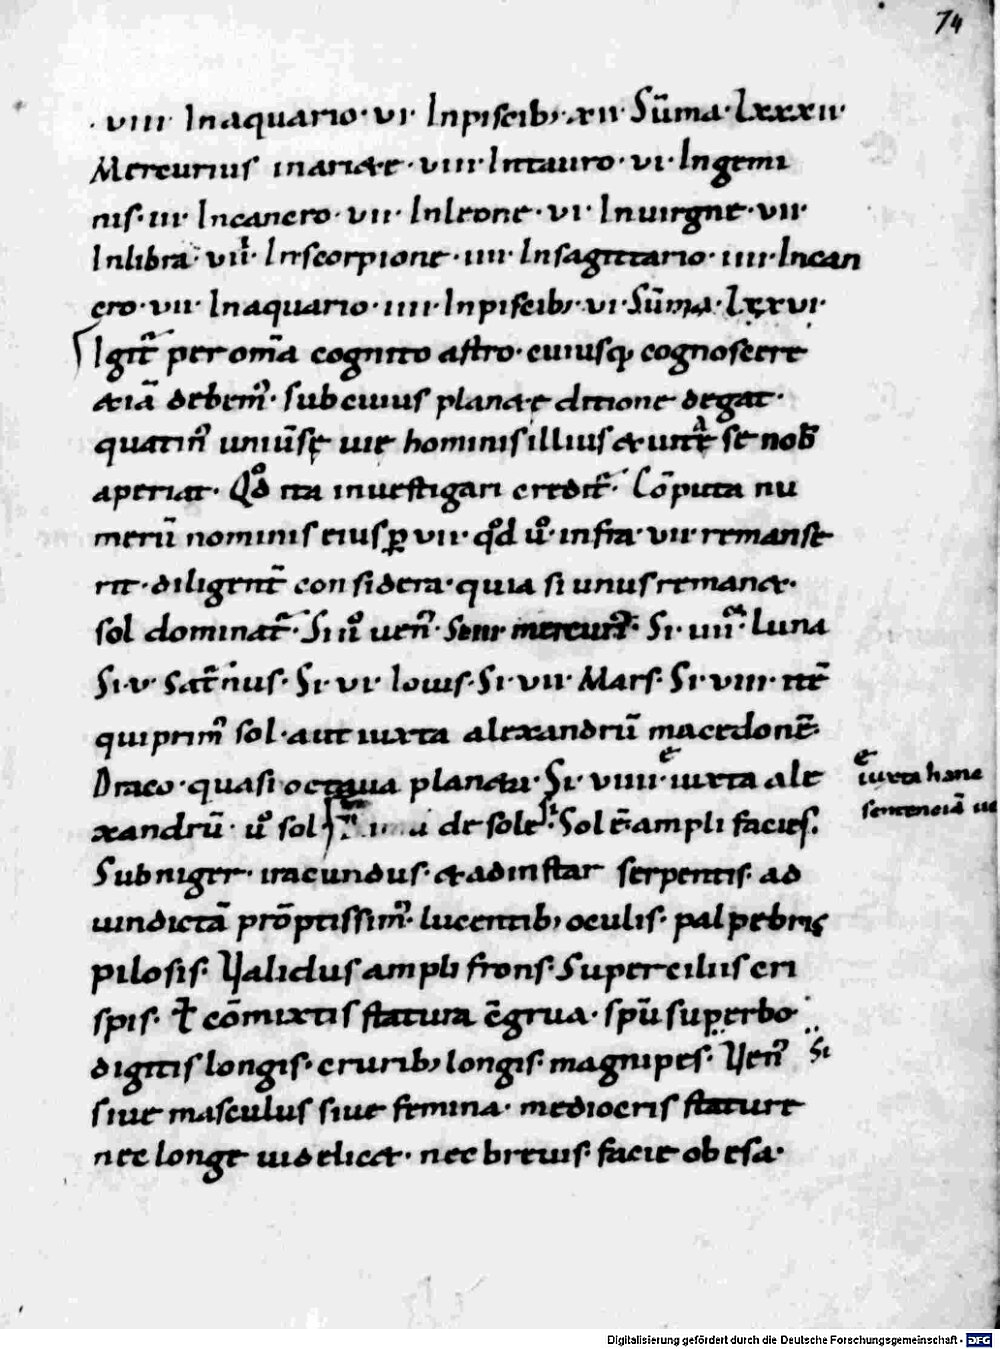 74
· VIII · In aquario · VI · In piscib; XII · Sūma · LXXXII ·
Mercurius in ariete · VIII · In tauro · VI · In gemi
nis · III · In cancro · VII · In leone · VI · In uirgne · VII ·
In libra · VII · In scorpione · IIII · In sagittario · IIII · In can
cro · VII · In aquario · IIII · In piscib; VI · Sūma · LXXVI ·
Igit᷑ per om̄a cognito astro · cuiusq; cognoscere
& iā debem᷒ · sub cuius planetę ditione degat ·
quatin᷒ uniūsę uie hominis illius & uitę se nob̄
aperiat · Qd̊ ita inuestigari credit᷑ · Cōputa nu
merū nominis eius ꝑ VII · qd̊ ů infra · VII · remanse
rit · diligent̄ considera · quia si unus remanet ·
sol dominat᷑ · Si II ů uen᷒ · Si III mercuri᷒ · Si · IIII · luna
Si · V · Sat᷑nus · Si · VI · Iouis · Si · VII · Mars · Si · VIII · itē
qui prim᷒ sol · aut iuxta alexandrū macedonē ·
Draco · quasi octaua planeta · Si · VIIII · iuxta ale
iuxta hanc
xandrū · ů sol · de sole · Sol ē ampli facies ·
sentenciā
Subniger · iracundus · & ad instar serpentis · ad
uindictā prōptissim᷒ · lucentib; oculis · palpebris
pilosis · Ualidus ampli frons · Superciliis cri
spis · ł cōmixtis statura ēgrua · spū superbo ·
digitis longis · crurib; longis · magni pes · Uen᷒ Si
siue masculus siue femina · mediocris stature
nec longe uidelicet · nec breuis · facie obesa ·
Digitalisierung gefördert durch die Deutsche Forschungsgemeinschaft - DFG